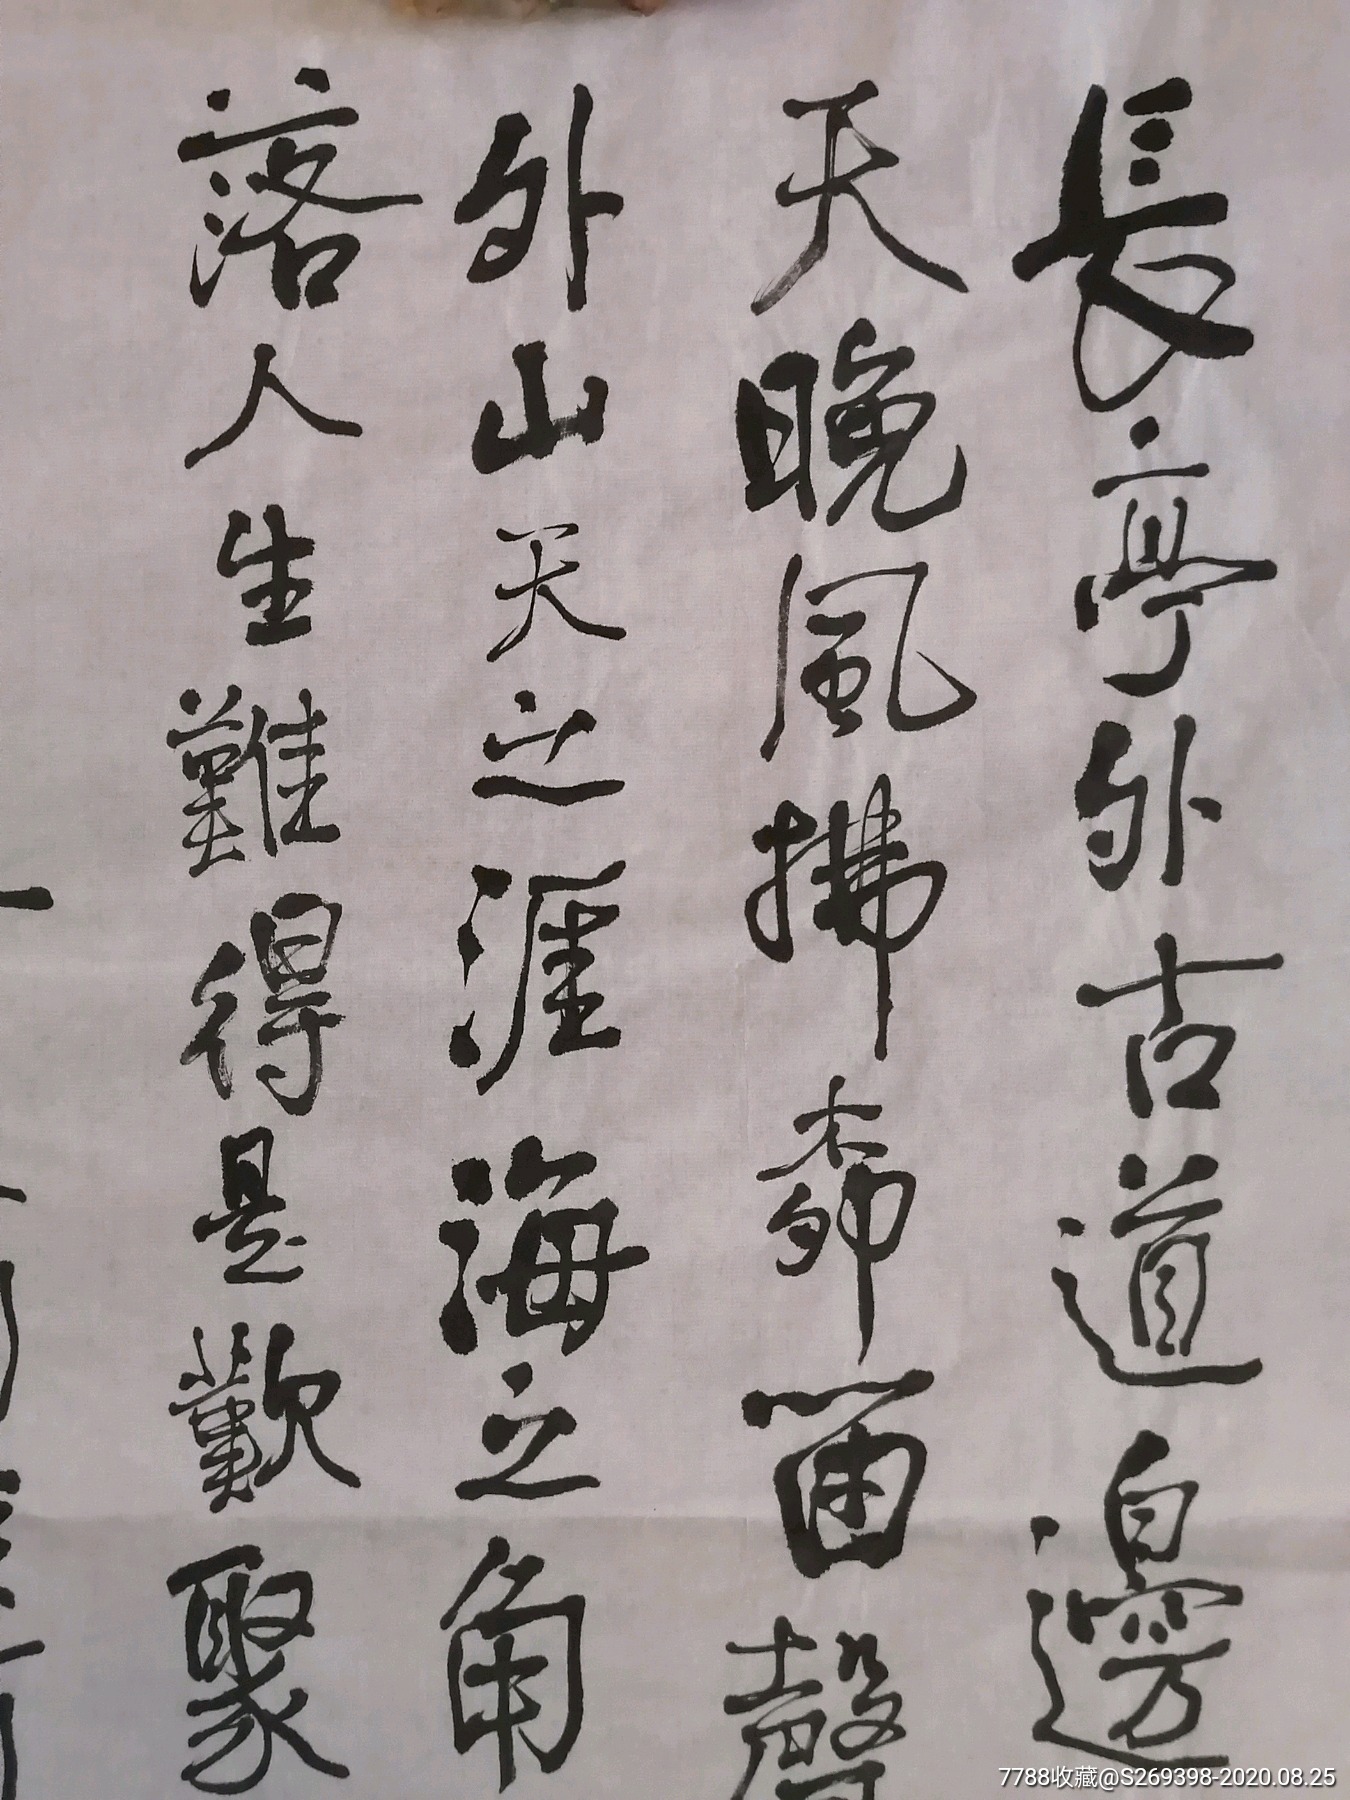 長亭外古道邊
天晚風拂柳笛聲
外山天之涯海之角
落人生難得是歡聚
7788收藏@S269398-2020.08.25